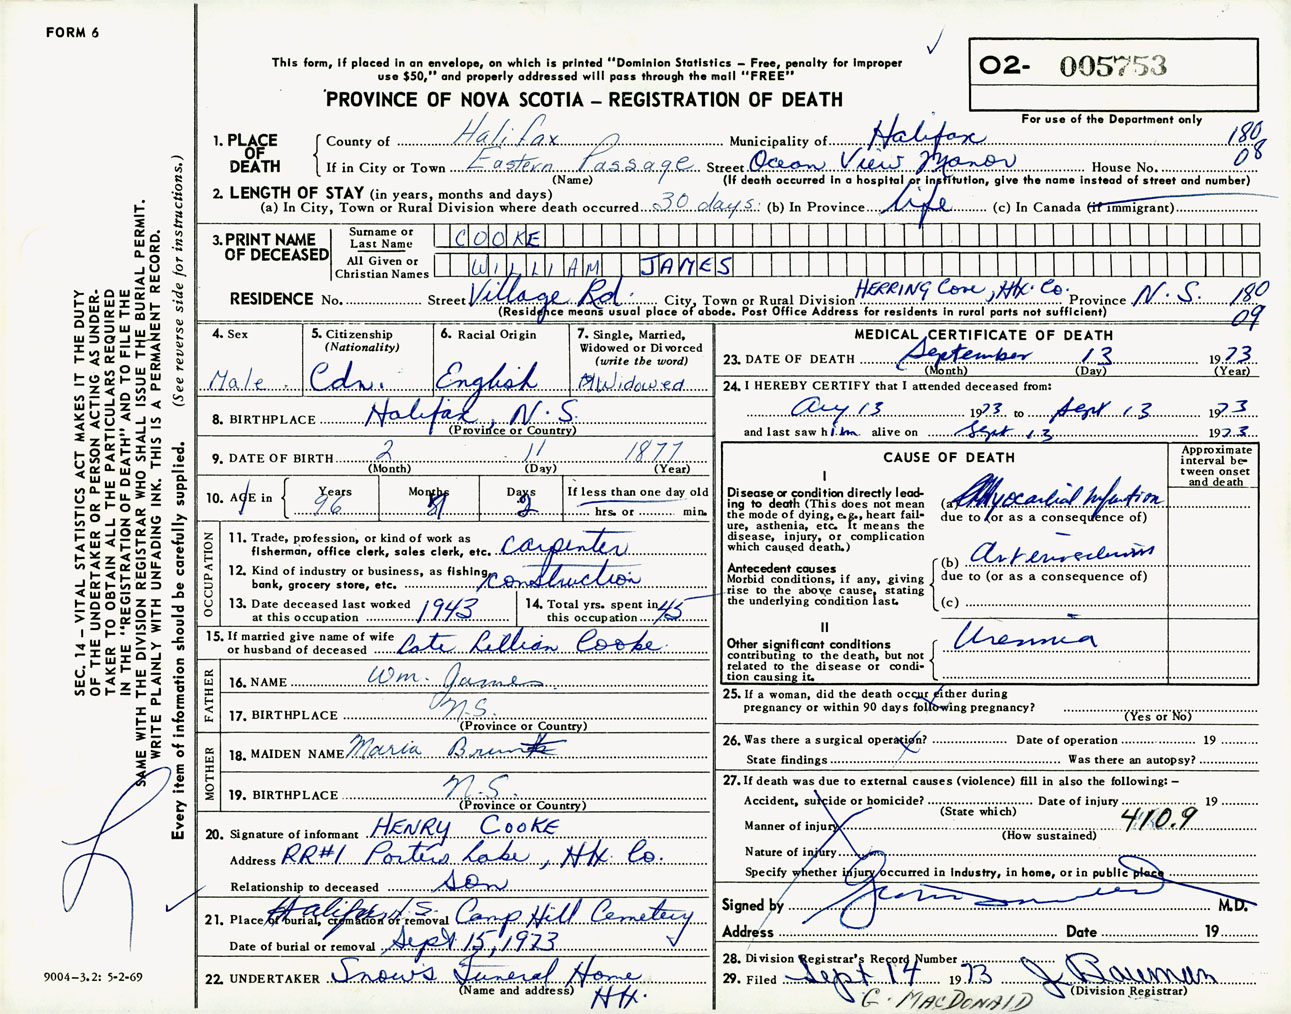 FORM 6
This form, if placed in an envelope, on which is printed "Dominion Statistics – Free, penalty for improper
use $50," and properly addressed will pass through the mail "FREE"
O2- 005753
PROVINCE OF NOVA SCOTIA – REGISTRATION OF DEATH
For use of the Department only
1. PLACE OF DEATH County of Halifax Municipality of Halifax 180
If in City or Town Eastern Passage Street Ocean View Manor House No. 08
(Name) (If death occurred in a hospital or institution, give the name instead of street and number)
2. LENGTH OF STAY (in years, months and days)
(a) In City, Town or Rural Division where death occurred 30 days. (b) In Province life (c) In Canada (if immigrant)
3. PRINT NAME OF DECEASED
Surname or Last Name COOKE
All Given or Christian Names WILLIAM JAMES
RESIDENCE No. Street Village Rd. City, Town or Rural Division HERRING Cove, Hfx. Co. Province N.S. 180
(Residence means usual place of abode. Post Office Address for residents in rural parts not sufficient) 09
4. Sex Male.
5. Citizenship (Nationality) Cdn.
6. Racial Origin English
7. Single, Married, Widowed or Divorced (write the word) Widowed
8. BIRTHPLACE Halifax, N.S.
(Province or Country)
9. DATE OF BIRTH 2 11 1877
(Month) (Day) (Year)
10. AGE in Years 96 Months Days 2 If less than one day old
hrs. or min.
OCCUPATION
11. Trade, profession, or kind of work as
fisherman, office clerk, sales clerk, etc. Carpenter
12. Kind of industry or business, as fishing,
bank, grocery store, etc. Construction
13. Date deceased last worked
at this occupation 1943
14. Total yrs. spent in
this occupation 45
15. If married give name of wife
or husband of deceased Late Lillian Cooke
FATHER
16. NAME Wm. James
17. BIRTHPLACE N.S.
(Province or Country)
MOTHER
18. MAIDEN NAME Maria
19. BIRTHPLACE N.S.
(Province or Country)
20. Signature of informant HENRY COOKE
Address RR#1 Porters Lake, Hfx. Co.
Relationship to deceased Son
21. Place of burial, cremation or removal Halifax N.S. Camp Hill Cemetery
Date of burial or removal Sept 15, 1973
22. UNDERTAKER Snow's Funeral Home
(Name and address) Hfx.
MEDICAL CERTIFICATE OF DEATH
23. DATE OF DEATH September 13 1973
(Month) (Day) (Year)
24. I HEREBY CERTIFY that I attended deceased from:
Aug 13 1973 to Sept 13 1973
and last saw him alive on Sept 13 1973
CAUSE OF DEATH
Approximate interval between onset and death
I
Disease or condition directly leading to death (This does not mean the mode of dying, e.g., heart failure, asthenia, etc. It means the disease, injury, or complication which caused death.)
(a) Myocardial Infarction
due to (or as a consequence of)
Antecedent causes
Morbid conditions, if any, giving rise to the above cause, stating the underlying condition last.
(b) Arteriosclerosis
due to (or as a consequence of)
(c)
II
Other significant conditions
contributing to the death, but not related to the disease or condition causing it.
Uremia
25. If a woman, did the death occur either during
pregnancy or within 90 days following pregnancy?
(Yes or No)
26. Was there a surgical operation? Date of operation 19
State findings Was there an autopsy?
27. If death was due to external causes (violence) fill in also the following: –
Accident, suicide or homicide? Date of injury 19
(State which)
Manner of injury 410.9
(How sustained)
Nature of injury
Specify whether injury occurred in Industry, in home, or in public place
Signed by M.D.
Address Date 19
28. Division Registrar's Record Number
29. Filed Sept 14 1973 J Bauman
(Division Registrar)
G. MACDONALD
SEC. 14 – VITAL STATISTICS ACT MAKES IT THE DUTY
OF THE UNDERTAKER OR PERSON ACTING AS UNDER-
TAKER TO OBTAIN ALL THE PARTICULARS REQUIRED
IN THE "REGISTRATION OF DEATH" AND TO FILE THE
SAME WITH THE DIVISION REGISTRAR WHO SHALL ISSUE THE BURIAL PERMIT.
WRITE PLAINLY WITH UNFADING INK. THIS IS A PERMANENT RECORD.
Every item of information should be carefully supplied. (See reverse side for instructions.)
9004–3.2: 5-2-69